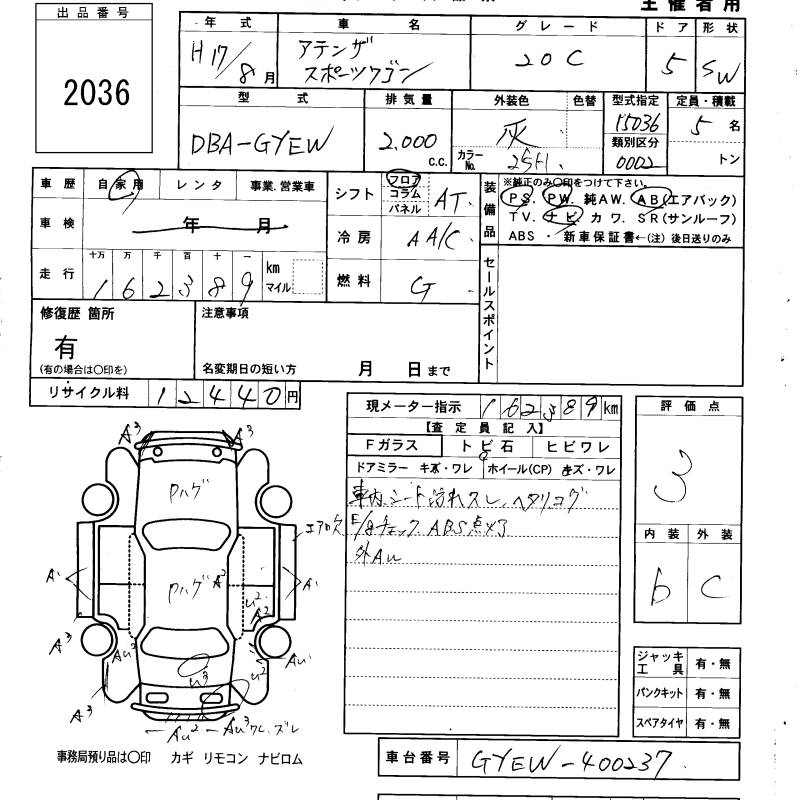 主催者用
出品番号
2036
年式 車名 グレード ドア 形状
H17/8月 アテンザ スポーツワゴン 20C 5 SW
型式 排気量 外装色 色替 型式指定 定員・積載
DBA-GYEW 2.000 c.c. 灰 15036 5名
カラーNo. 25H 類別区分 0002 トン
車歴 自家用 レンタ 事業.営業車
車検 年 月
走行 十万 万 千 百 十 一 km マイル
162389
シフト フロア コラム パネル AT
冷房 AA/C
燃料 G
装備品
※純正のみ○印をつけて下さい。
PS. PW. 純AW. AB(エアバック)
TV. ナビ. カワ. SR(サンルーフ)
ABS ・ 新車保証書←(注)後日送りのみ
セールスポイント
修復歴 箇所
有
(有の場合は○印を)
注意事項
名変期日の短い方 月 日まで
リサイクル料 12440円
現メーター指示 162389km
【査定員記入】
Fガラス トビ石 ヒビワレ
ドアミラー キズ・ワレ ホイール(CP) キズ・ワレ
車内シート汚れスレ.ヘタリコゲ
E/gチェック ABS点灯
外Au
評価点
3
内装 外装
b C
ジャッキ工具 有・無
パンクキット 有・無
スペアタイヤ 有・無
A3 A3
Pハゲ
エアロ欠
Pハゲ A2
A1 U2 A2 A1
A3 Au2 U3 U2 Au1
A3
Au2 Au3 ワレ.ズレ
事務局預り品は○印 カギ リモコン ナビロム
車台番号 GYEW-400237